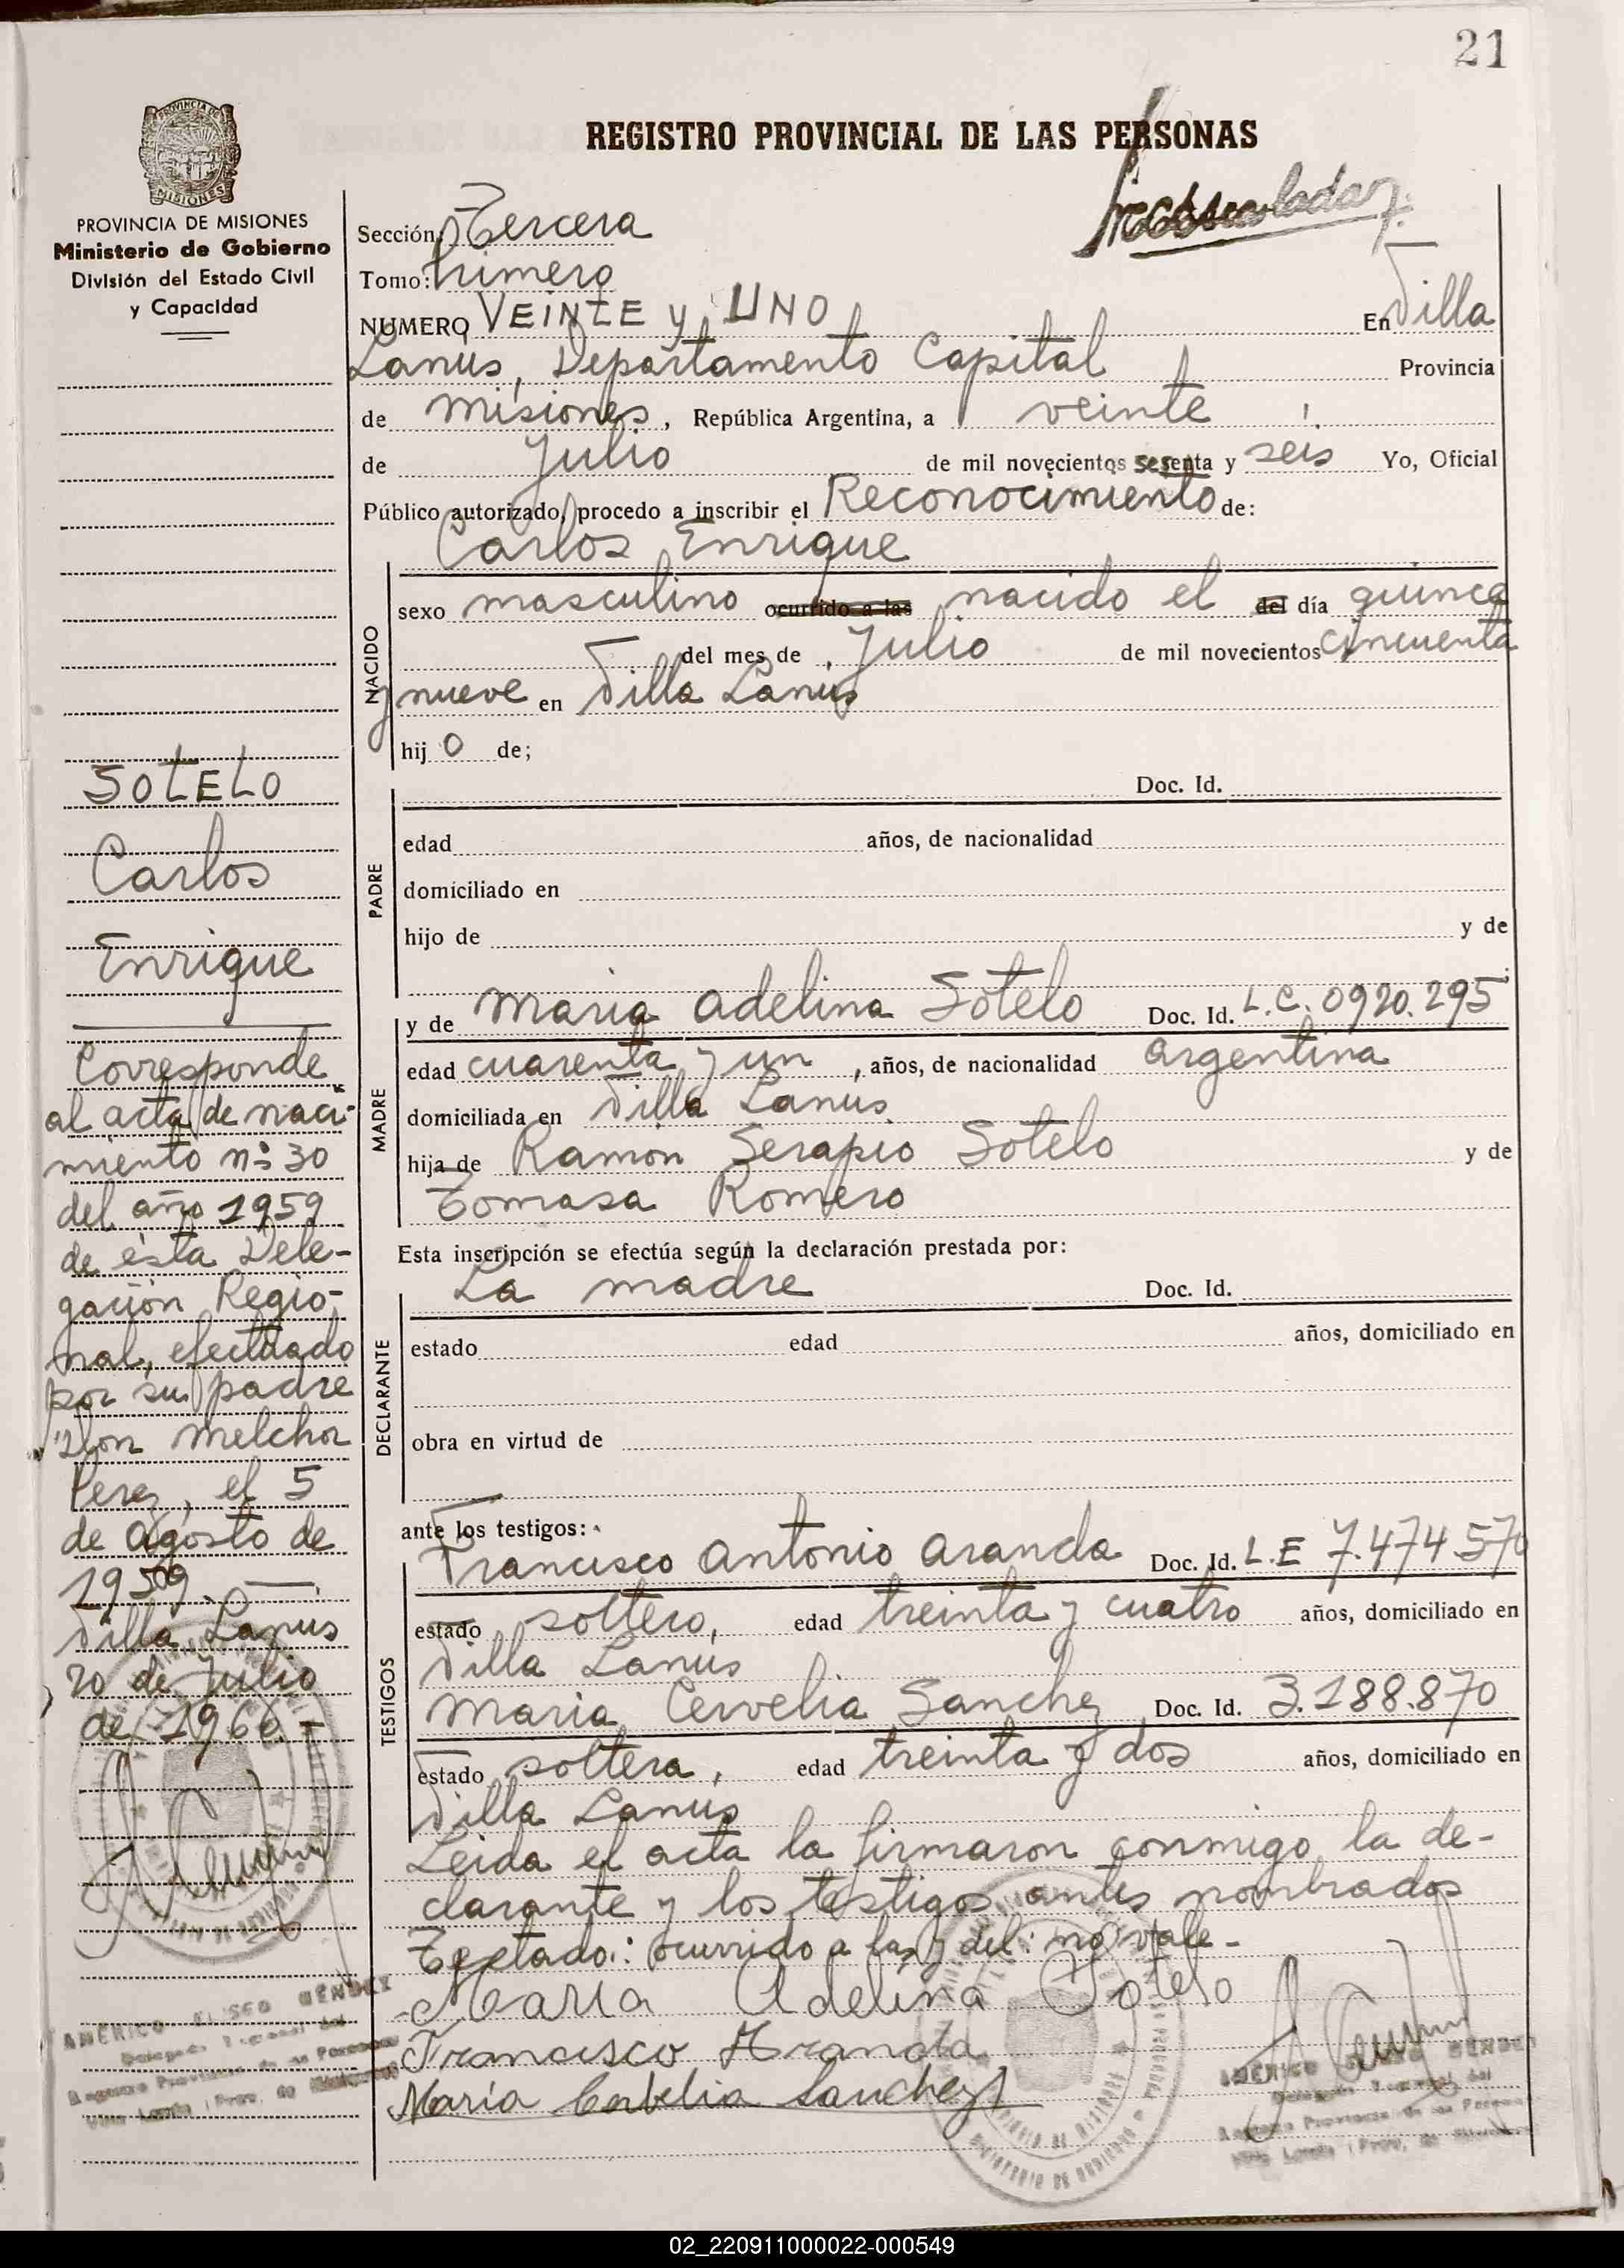 21
REGISTRO PROVINCIAL DE LAS PERSONAS
PROVINCIA DE MISIONES
MISIONES
PROVINCIA DE MISIONES
Ministerio de Gobierno
División del Estado Civil
y Capacidad
SOTELO
Carlos
Enrique
Corresponde
al acta de naci-
miento nº 30
del año 1959
de ésta Dele-
gación Regio-
nal, efectuado
por su padre
Don Melchor
Perez, el 5
de Agosto de
1959.
Villa Lanus
20 de Julio
de 1966
AMÉRICO ELISEO MÉNDEZ
Delegado Regional del
Registro Provincial de las Personas
Villa Lanús (Prov. de Misiones)
Sección Tercera
Tomo: Primero
NUMERO VEINTE y UNO En Villa
Lanus, Departamento Capital Provincia
de Misiones, República Argentina, a veinte
de Julio de mil novecientos sesenta y seis Yo, Oficial
Público autorizado, procedo a inscribir el Reconocimiento de:
Carlos Enrique
NACIDO
sexo masculino ocurrido a las nacido el del día quince
del mes de Julio de mil novecientos cincuenta
y nueve en Villa Lanús
hij o de;
PADRE
Doc. Id.
edad años, de nacionalidad
domiciliado en
hijo de y de
MADRE
y de Maria Adelina Sotelo Doc. Id. L.C. 0920.295
edad cuarenta y un, años, de nacionalidad Argentina
domiciliada en Villa Lanús
hija de Ramón Serapio Sotelo y de
Tomasa Romero
Esta inscripción se efectúa según la declaración prestada por:
DECLARANTE
La madre Doc. Id.
estado edad años, domiciliado en
obra en virtud de
ante los testigos:
TESTIGOS
Francisco Antonio Aranda Doc. Id. L.E 7.474.570
estado soltero, edad treinta y cuatro años, domiciliado en
Villa Lanús
Maria Cervelia Sanchez Doc. Id. 3.188.870
estado soltera, edad treinta y dos años, domiciliado en
Villa Lanús
Leida el acta la firmaron conmigo la de-
clarante y los testigos antes nombrados
Testado: ocurrido a las y del: no vale-
Maria Adelina Sotelo
Francisco Aranda
María Cerbelia Sanchez
AMÉRICO ELISEO MÉNDEZ
Delegado Regional del
Registro Provincial de las Personas
Villa Lanús (Prov. de Misiones)
02_220911000022-000549